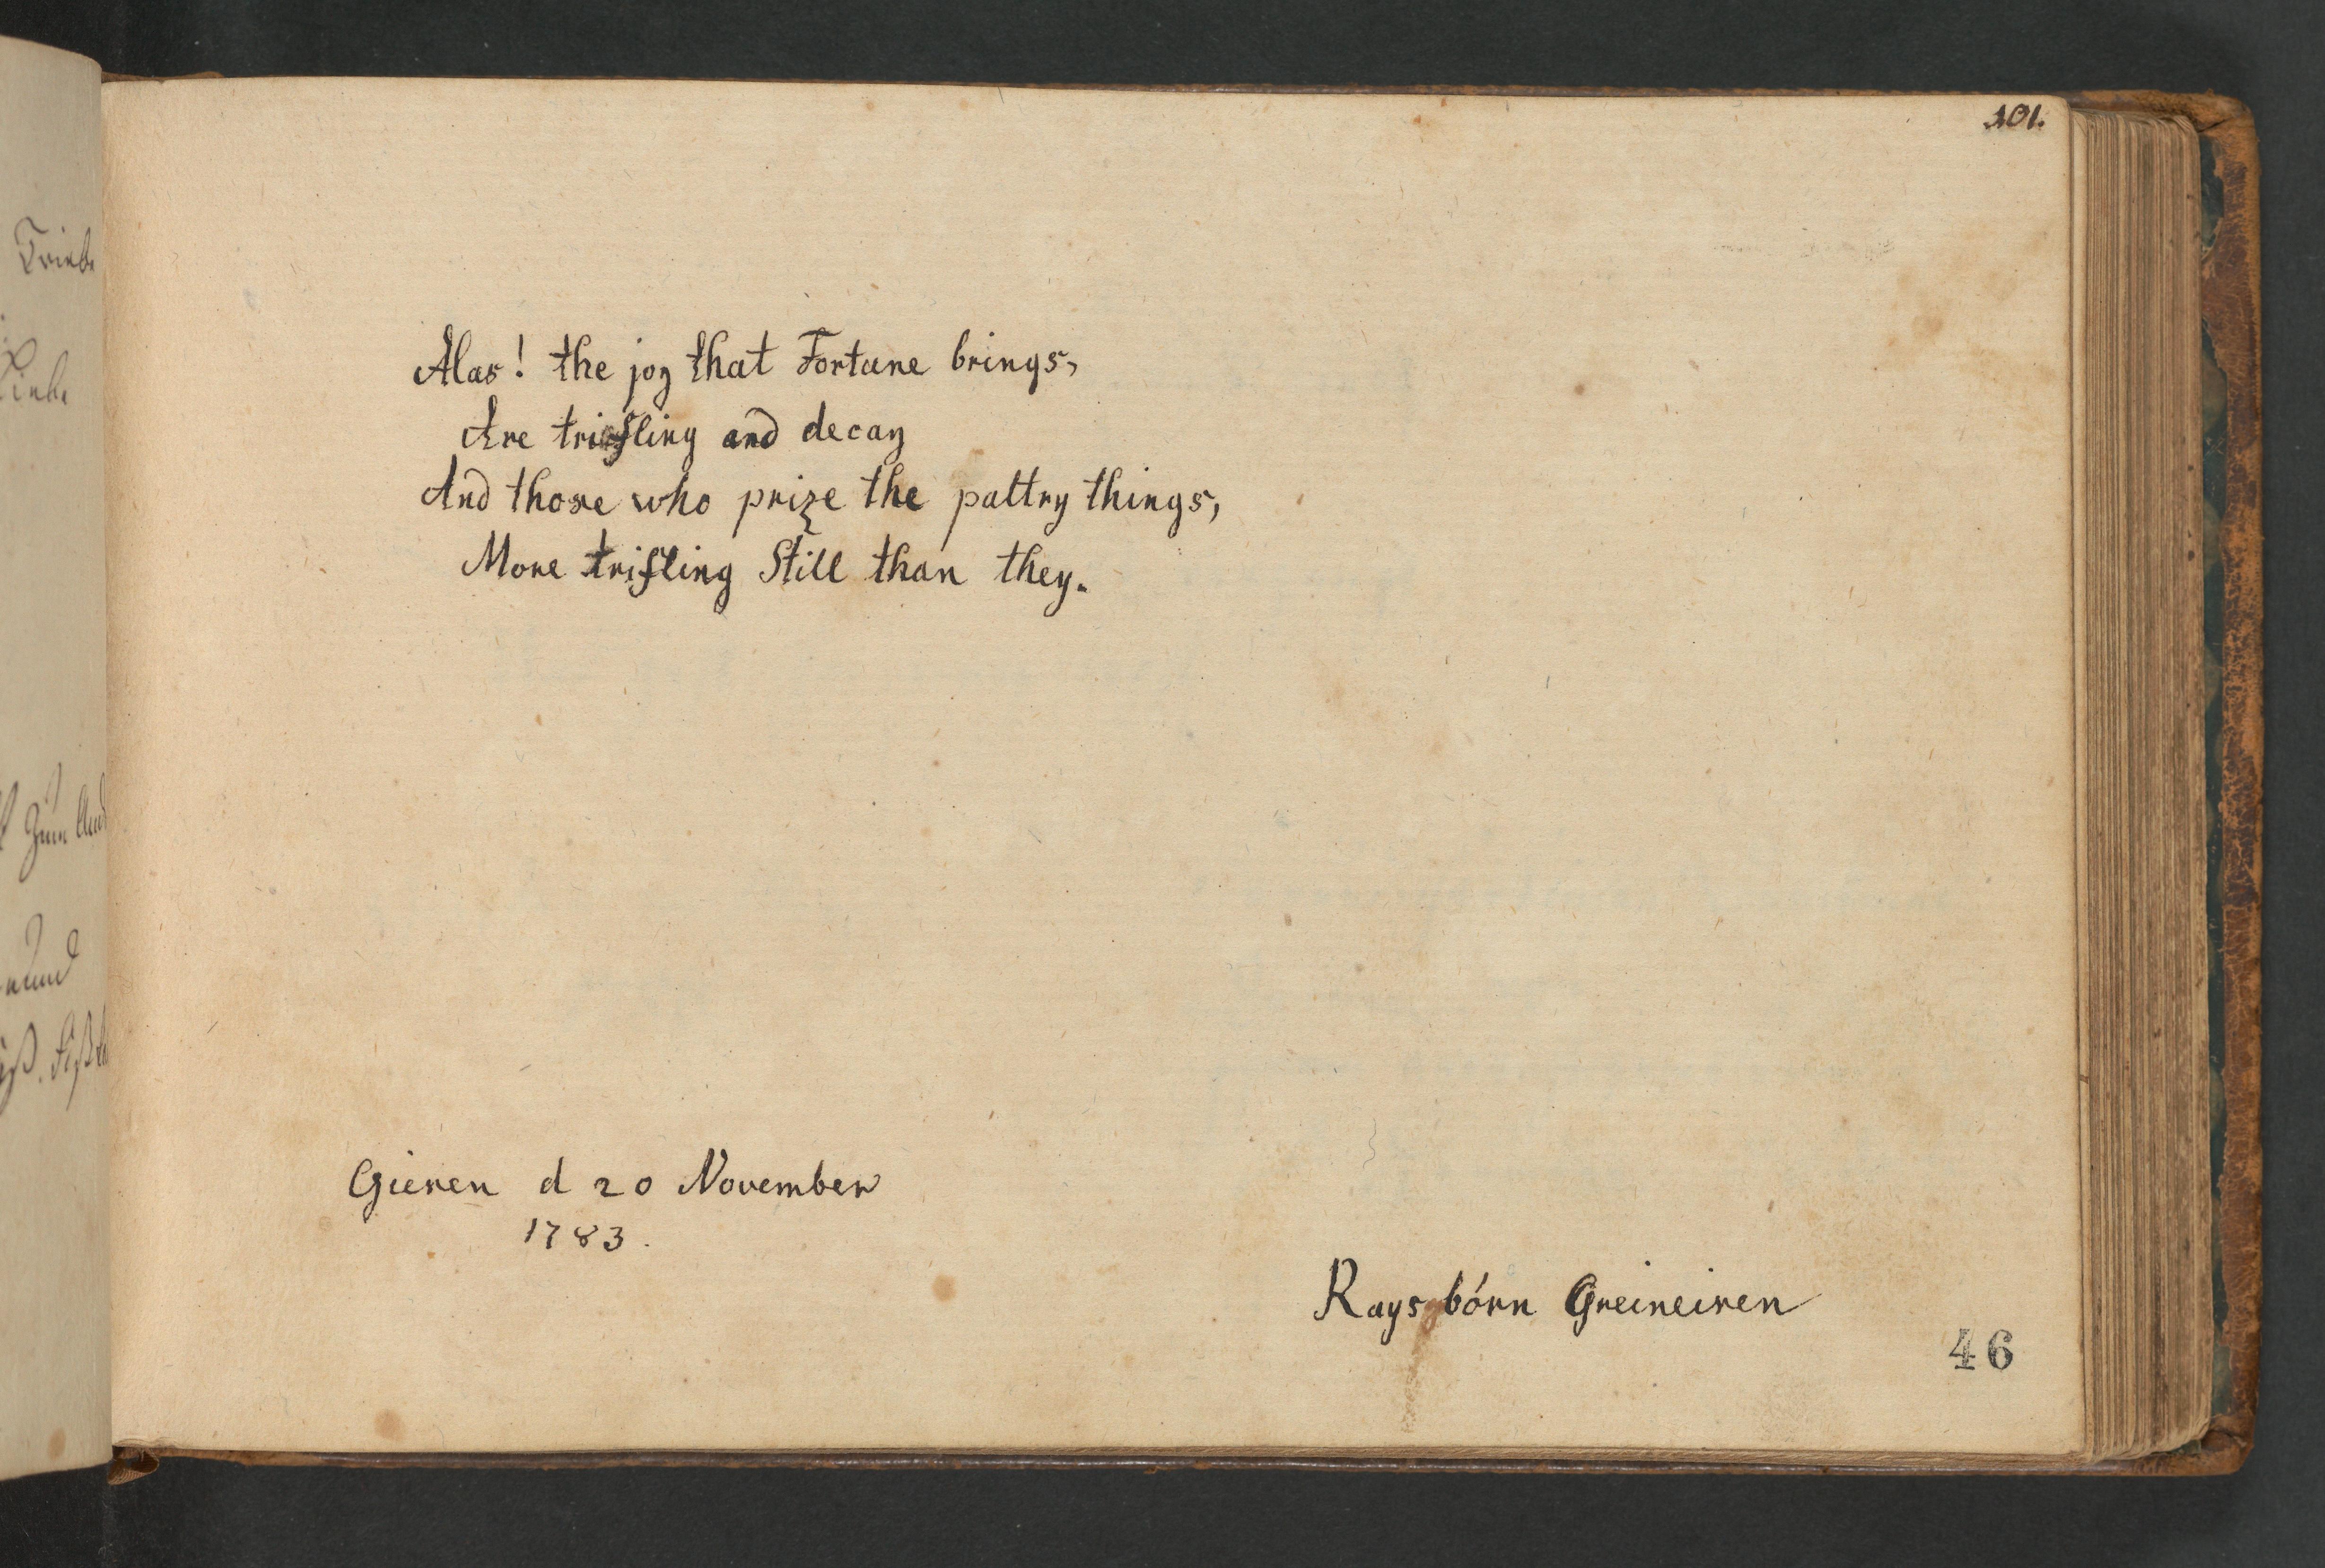 101.
Alas! the joy that Fortune brings,
Are trifling and decay
And those who prize the paltry things,
More trifling Still than they.
Gieren d 20 November
1783.
Raysbórn Greineiren
46
Triebe
Liebe
zum And